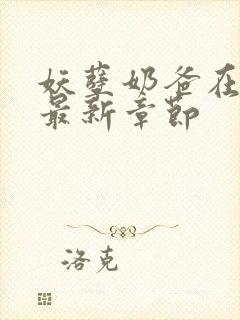 妖孽奶爸在
最新章节
洛克